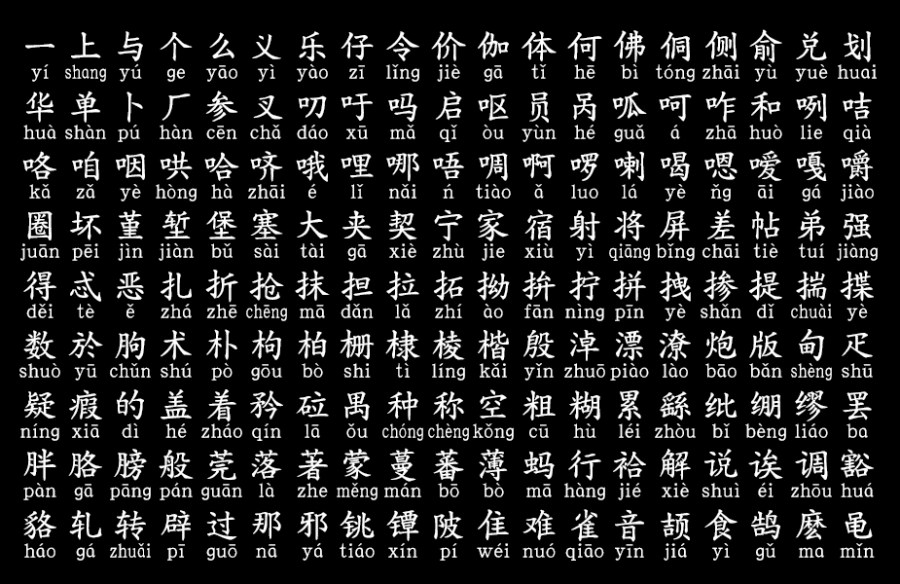 一 上 与 个 么 义 乐 仔 令 价 伽 体 何 佛 侗 侧 俞 兑 划
yí shang yú ge yāo yì yào zī lǐng jiè gā tǐ hē bì tóng zhāi yù yuè huai
华 单 卜 厂 参 叉 叨 吁 吗 启 呕 员 呙 呱 呵 咋 和 咧 咭
huà shàn pú hàn cēn chǎ dáo xū mǎ qǐ òu yùn hé guǎ á zhā huò lie qià
咯 咱 咽 哄 哈 哜 哦 哩 哪 唔 啁 啊 啰 喇 喝 嗯 嗳 嘎 嚼
kǎ zǎ yè hòng hà zhāi é lǐ nǎi ń tiào ǎ luo lá yè ňg āi gá jiào
圈 坏 堇 堑 堡 塞 大 夹 契 宁 家 宿 射 将 屏 差 帖 弟 强
juān pēi jìn jiàn bǔ sài tài gā xiè zhù jie xiù yì qiāng bǐng chāi tiè tuí jiàng
得 忒 恶 扎 折 抢 抹 担 拉 拓 拗 拚 拧 拼 拽 掺 提 揣 揲
děi tè ě zhá zhē chēng mā dǎn lǎ zhí ào fān nìng pīn yè shǎn dǐ chuài yè
数 於 朐 术 朴 枸 柏 栅 棣 棱 楷 殷 淖 漂 潦 炮 版 甸 疋
shuò yū chǔn shú pò gōu bò shi tì líng kǎi yǐn zhuō piào lào bāo bǎn shèng shū
疑 瘕 的 盖 着 矜 砬 禺 种 称 空 粗 糊 累 繇 纰 绷 缪 罢
níng xiā dì hé zháo qín lā ǒu chóng chèng kǒng cū hù léi zhòu bǐ bèng liáo ba
胖 胳 膀 般 莞 落 著 蒙 蔓 蕃 薄 蚂 行 袷 解 说 诶 调 豁
pàn gā pāng pán guān là zhe měng mán bō bò mā hàng jié xiè shuì éi zhōu huá
貉 轧 转 辟 过 那 邪 铫 镡 陂 隹 难 雀 音 颉 食 鹄 麽 黾
háo gá zhuǎi pī guō nā yá tiáo xín pí wéi nuó qiāo yīn jiá yì gǔ ma mǐn